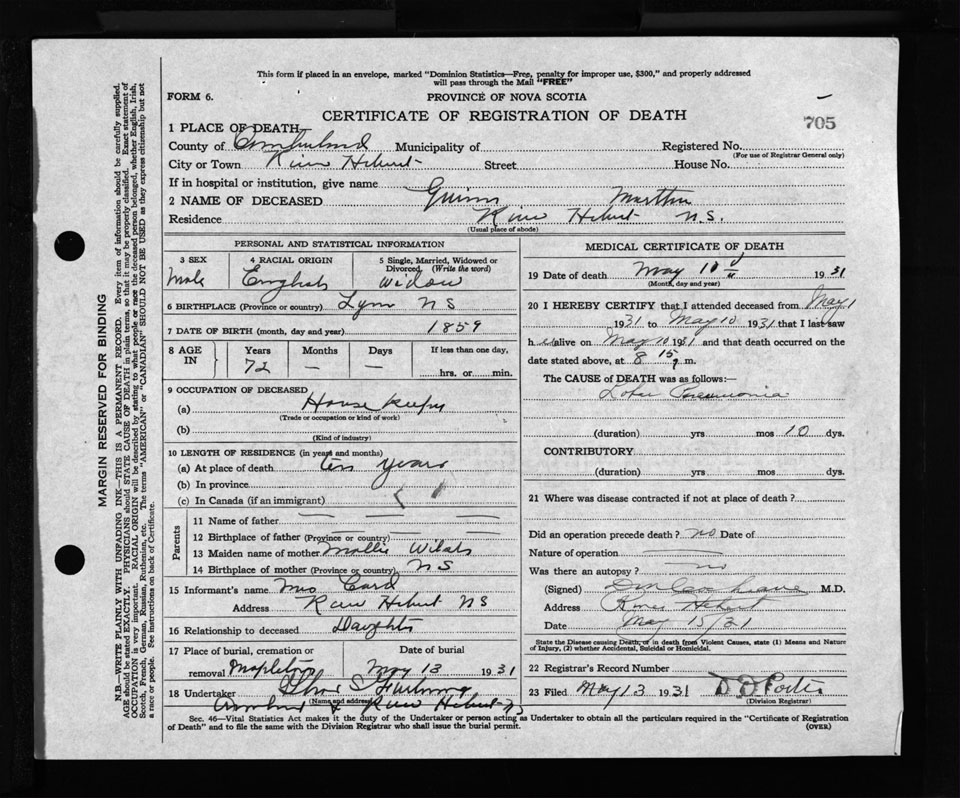 This form if placed in an envelope, marked "Dominion Statistics—Free, penalty for improper use, $300," and properly addressed
will pass through the Mail "FREE"
FORM 6. PROVINCE OF NOVA SCOTIA
CERTIFICATE OF REGISTRATION OF DEATH
705
1 PLACE OF DEATH
County of Cumberland Municipality of Registered No.
(For use of Registrar General only)
City or Town River Hebert Street House No.
If in hospital or institution, give name
2 NAME OF DECEASED Martha
Residence River Hebert N.S.
(Usual place of abode)
PERSONAL AND STATISTICAL INFORMATION
3 SEX 4 RACIAL ORIGIN 5 Single, Married, Widowed or Divorced (Write the word)
Male English Widow
6 BIRTHPLACE (Province or country) Lynn N S
7 DATE OF BIRTH (month, day and year) 1859
8 AGE IN Years Months Days If less than one day,
72 — — hrs. or min.
9 OCCUPATION OF DECEASED
(a) House
(Trade or occupation or kind of work)
(b)
(Kind of industry)
10 LENGTH OF RESIDENCE (in years and months)
(a) At place of death ten years
(b) In province
(c) In Canada (if an immigrant)
Parents
11 Name of father
12 Birthplace of father (Province or country)
13 Maiden name of mother Mollie
14 Birthplace of mother (Province or country) N S
15 Informant's name Mrs Card
Address River Hebert N S
16 Relationship to deceased Daughter
17 Place of burial, cremation or removal Mapleton Date of burial May 13 1931
18 Undertaker
(Name and address) River Hebert N S
MEDICAL CERTIFICATE OF DEATH
19 Date of death May 10 1931
(Month, day and year)
20 I HEREBY CERTIFY that I attended deceased from May 1
1931 to May 10 1931 that I last saw
h alive on May 10 1931 and that death occurred on the
date stated above, at 8 15 m.
The CAUSE of DEATH was as follows:—
Lobar Pneumonia
(duration) yrs mos 10 dys.
CONTRIBUTORY
(duration) yrs mos dys.
21 Where was disease contracted if not at place of death?
Did an operation precede death? no Date of
Nature of operation
Was there an autopsy? no
(Signed) M.D.
Address River Hebert
Date May 15/31
State the Disease causing Death, or in death from Violent Causes, state (1) Means and Nature
of Injury, (2) whether Accidental, Suicidal or Homicidal.
22 Registrar's Record Number
23 Filed May 13 1931 Porter
(Division Registrar)
Sec. 46—Vital Statistics Act makes it the duty of the Undertaker or person acting as Undertaker to obtain all the particulars required in the "Certificate of Registration
of Death" and to file the same with the Division Registrar who shall issue the burial permit. (OVER)
MARGIN RESERVED FOR BINDING
N.B.—WRITE PLAINLY WITH UNFADING INK—THIS IS A PERMANENT RECORD. Every item of information should be carefully supplied.
AGE should be stated EXACTLY. PHYSICIANS should STATE CAUSE OF DEATH in plain terms, so that it may be properly classified. Exact statement of
OCCUPATION is very important. RACIAL ORIGIN will be described by stating to what people or race the deceased person belonged, whether English, Irish,
Scotch, French, German, Russian, Ruthenian, etc. The terms "AMERICAN" or "CANADIAN" SHOULD NOT BE USED as they express citizenship but not
a race or people. See instructions on back of Certificate.